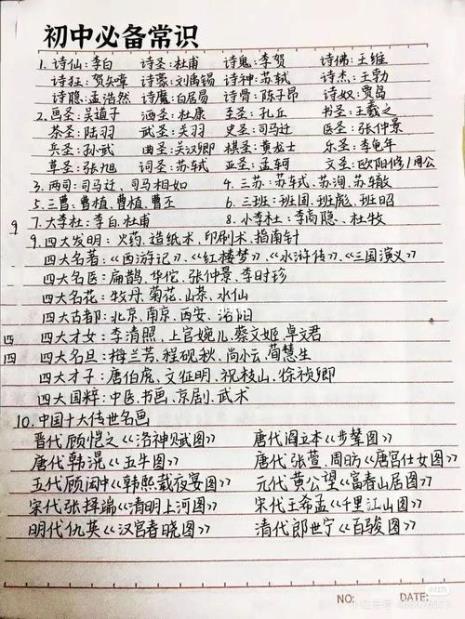 初中必备常识
1. 诗仙:李白 诗圣:杜甫 诗鬼:李贺 诗佛:王维
诗狂:贺知章 诗豪:刘禹锡 诗神:苏轼 诗杰:王勃
诗聪:孟浩然 诗魔:白居易 诗骨:陈子昂 诗奴:贾岛
2. 画圣:吴道子 酒圣:杜康 至圣:孔丘 书圣:王羲之
茶圣:陆羽 武圣:关羽 史圣:司马迁 医圣:张仲景
兵圣:孙武 曲圣:关汉卿 棋圣:黄龙士 乐圣:李龟年
草圣:张旭 词圣:苏轼 亚圣:孟轲 文圣:欧阳修/周公
3. 两司:司马迁、司马相如 4. 三苏:苏轼、苏洵、苏辙
5. 三曹:曹植、曹植、曹丕 6. 三班:班固、班彪、班昭
7. 大李杜:李白、杜甫 8. 小李杜:李商隐、杜牧
9. 四大发明:火药、造纸术、印刷术、指南针
四大名著:《西游记》、《红楼梦》、《水浒传》、《三国演义》
四大名医:扁鹊、华佗、张仲景、李时珍
四大名花:牡丹、菊花、山茶、水仙
四大古都:北京、南京、西安、洛阳
四大才女:李清照、上官婉儿、蔡文姬、卓文君
四大名旦:梅兰芳、程砚秋、尚小云、荀慧生
四大才子:唐伯虎、文征明、祝枝山、徐祯卿
四大国粹:中医、书画、京剧、武术
10. 中国十大传世名画
晋代顾恺之《洛神赋图》 唐代阎立本《步辇图》
唐代韩滉《五牛图》 唐代张萱、周昉《唐宫仕女图》
五代顾闳中《韩熙载夜宴图》 元代黄公望《富春山居图》
宋代张择端《清明上河图》 宋代王希孟《千里江山图》
明代仇英《汉宫春晓图》 清代郎世宁《百骏图》
NO: DATE: